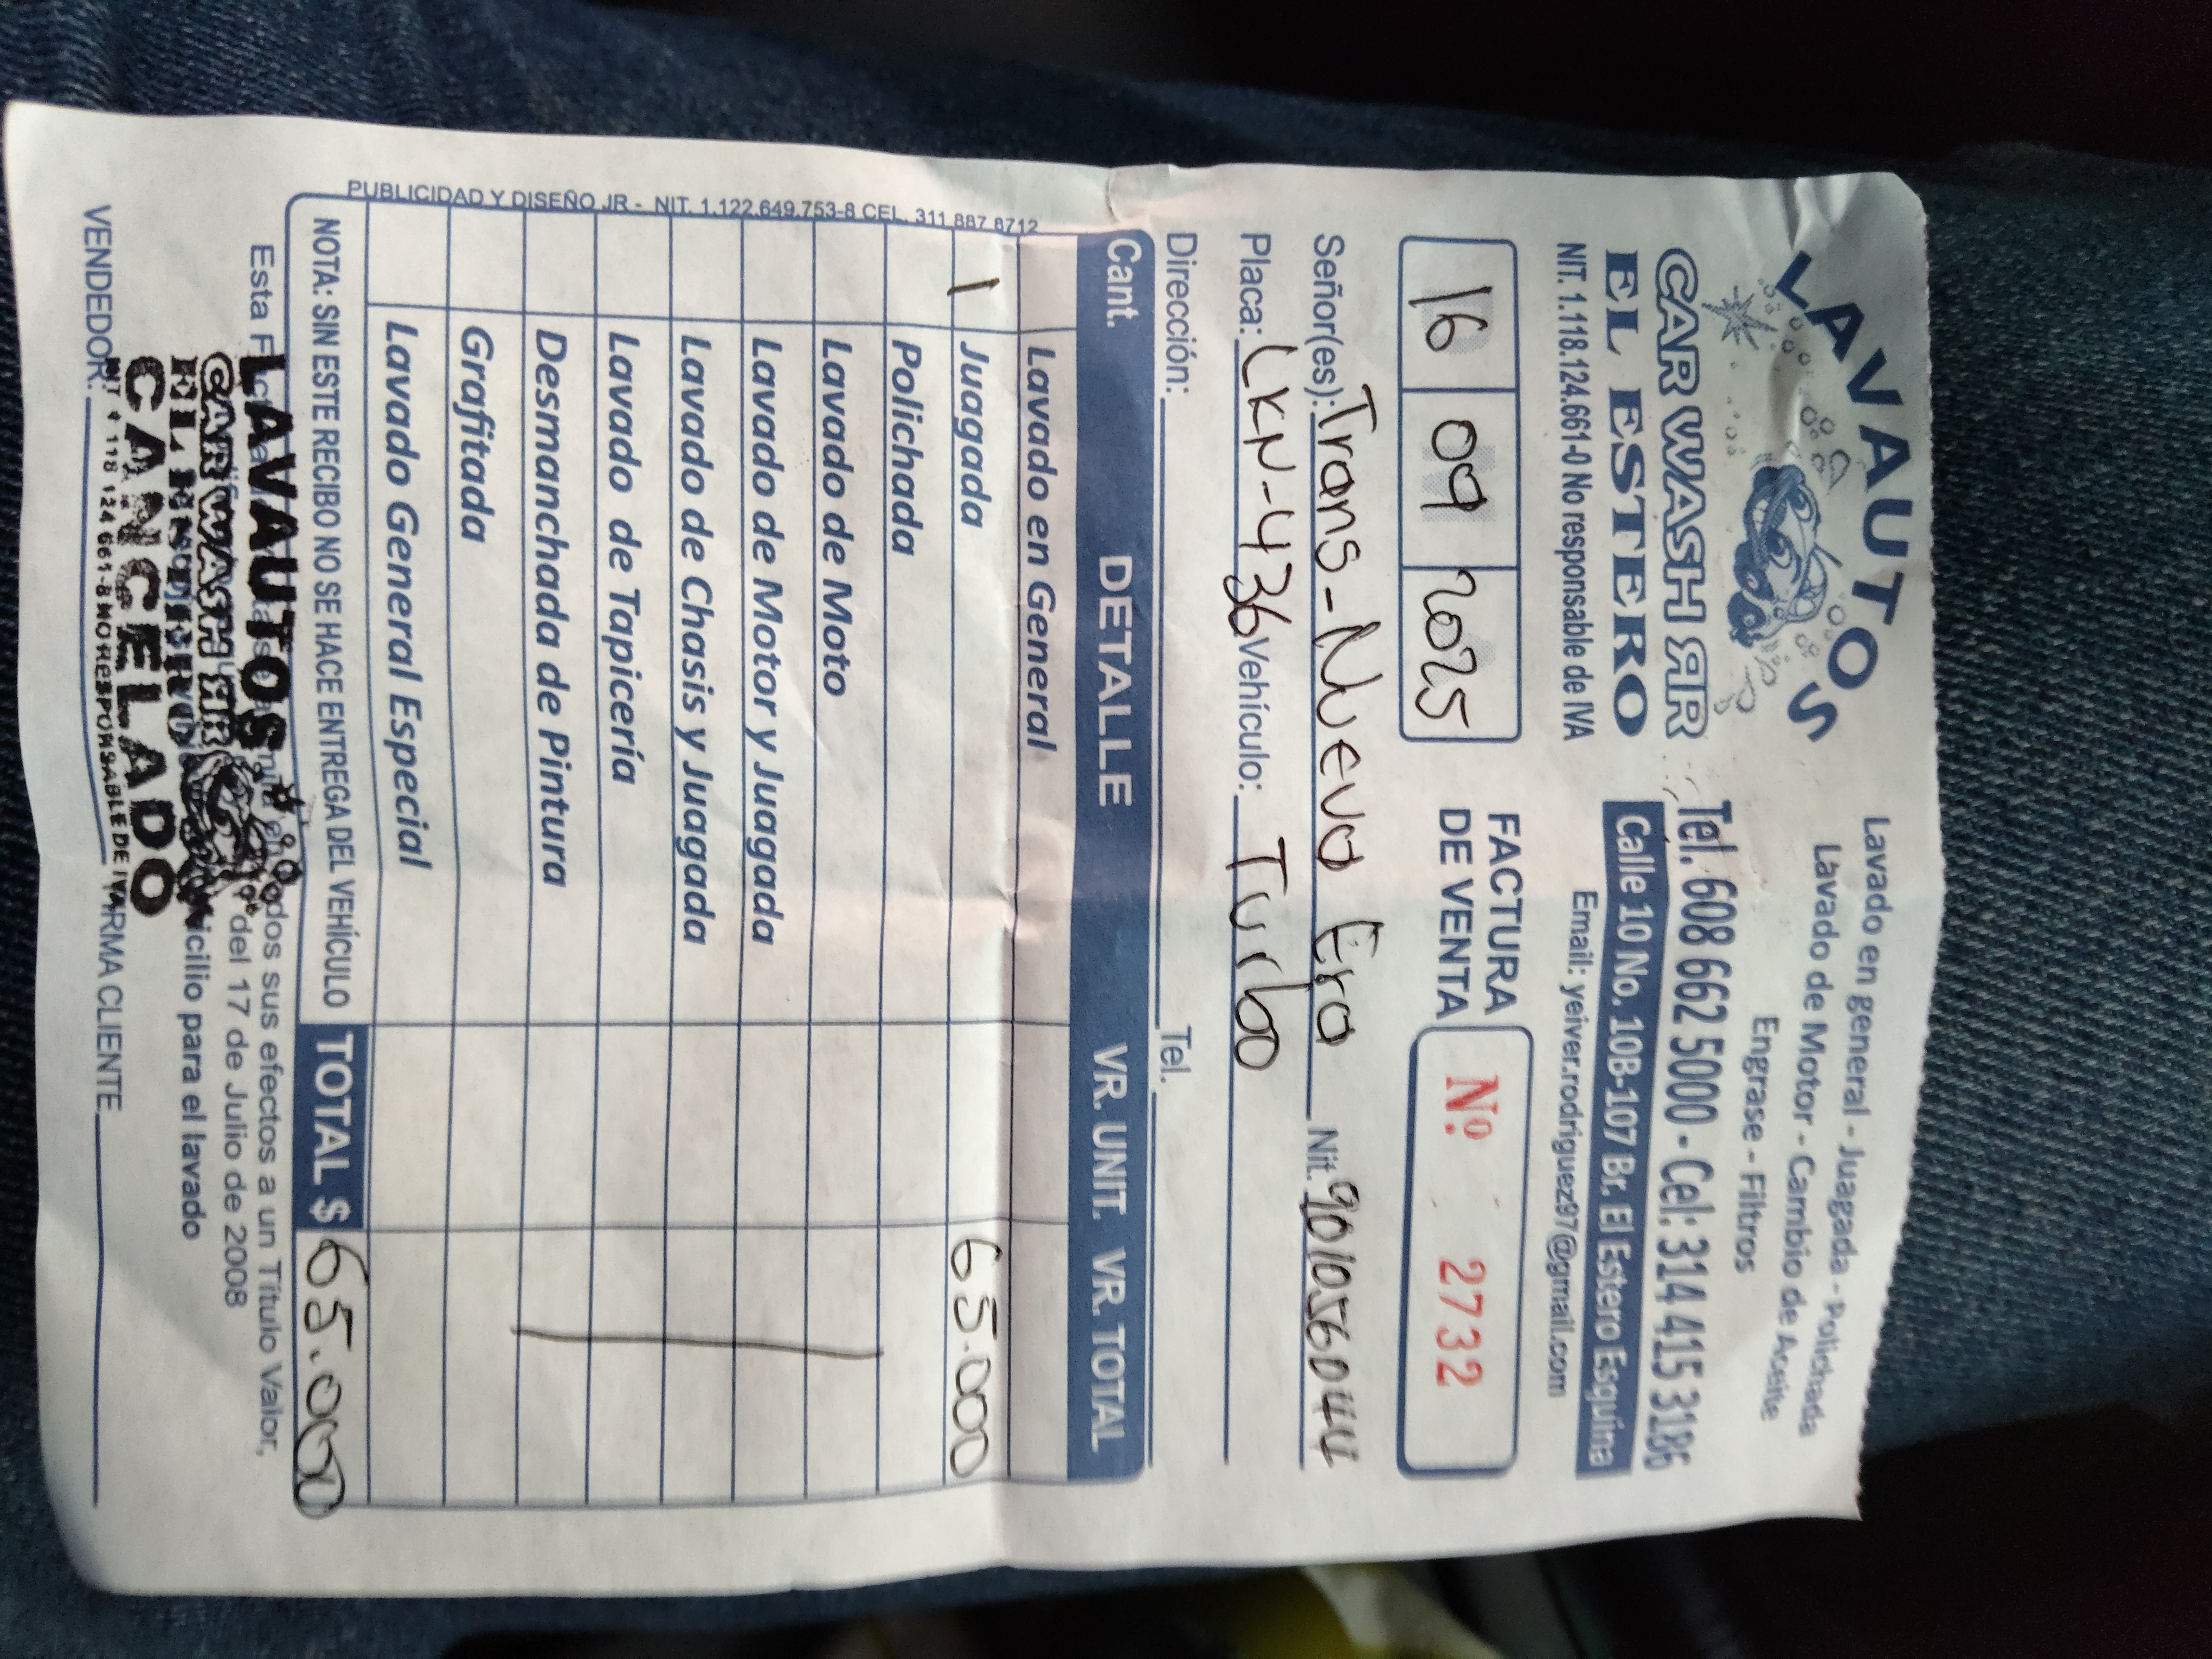 LAVAUTOS
CAR WASH RR
EL ESTERO
NIT. 1.118.124.661-0 No responsable de IVA
Lavado en general - Juagada - Polichada
Lavado de Motor - Cambio de Aceite
Engrase - Filtros
Tel. 608 662 5000 - Cel.: 314 415 3186
Calle 10 No. 10B-107 Br. El Estero Esquina
Email: yeiver.rodriguez97@gmail.com
16 09 2025
FACTURA DE VENTA
Nº 2732
Señor(es): Trans-Nueva Era Nit. 901056044
Placa: LKN-436 Vehículo: Turbo
Dirección: Tel.
Cant. DETALLE VR. UNIT. VR. TOTAL
Lavado en General
1 Juagada 65.000
Polichada
Lavado de Moto
Lavado de Motor y Juagada
Lavado de Chasis y Juagada
Lavado de Tapicería
Desmanchada de Pintura
Grafitada
Lavado General Especial
NOTA: SIN ESTE RECIBO NO SE HACE ENTREGA DEL VEHÍCULO TOTAL $ 65.000
Esta sus efectos a un Título Valor,
del 17 de Julio de 2008
para el lavado
VENDEDOR: FIRMA CLIENTE
LAVAUTOS
CAR WASH RR
EL ESTERO
CANCELADO
NO RESPONSABLE DE IVA
PUBLICIDAD Y DISEÑO JR - NIT. 1.122.649.753-8 CEL. 311 887 8712